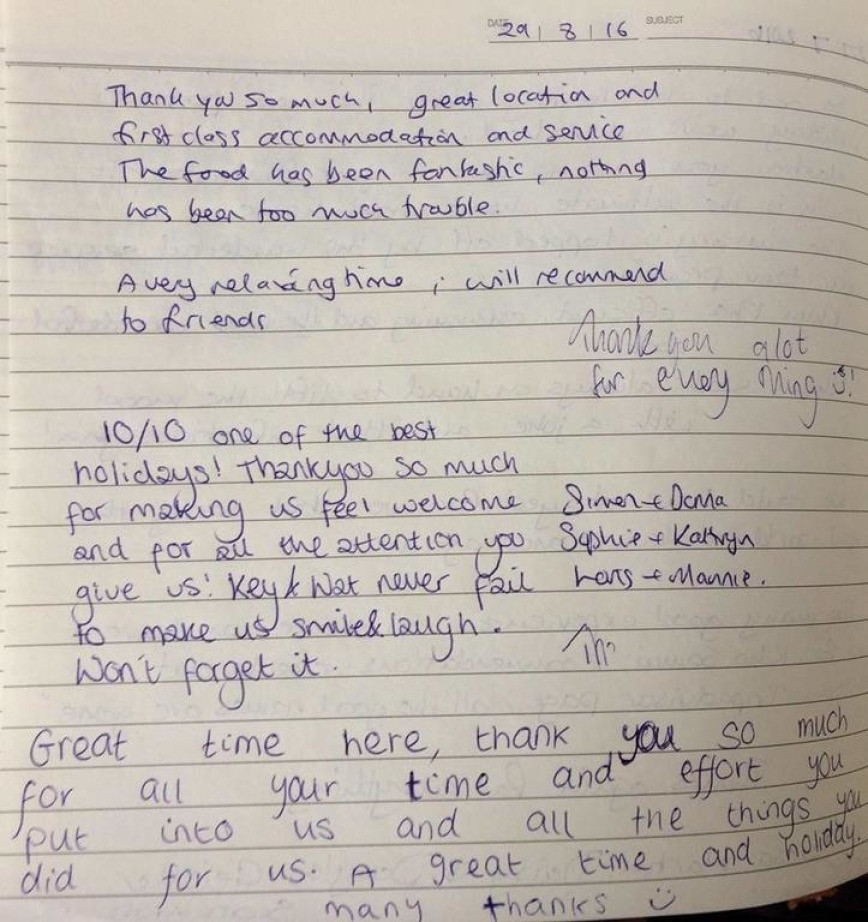 DATE 29 | 8 | 16 SUBJECT
Thank you so much, great location and
first class accommodation and service
The food has been fantastic, nothing
has been too much trouble.
A very relaxing time, i will recommend
to friends
Thank you alot
for every thing
10/10 one of the best
holidays! Thankyou so much
for making us feel welcome
and for all the attention you
give us! Key & Wat never fail
to make us smile & laugh.
Won't forget it.
Simon + Donna
Sophie + Kathryn
Lars + Mannie.
Great time here, thank you so much
for all your time and effort you
put into us and all the things you
did for us. A great time and holiday.
many thanks